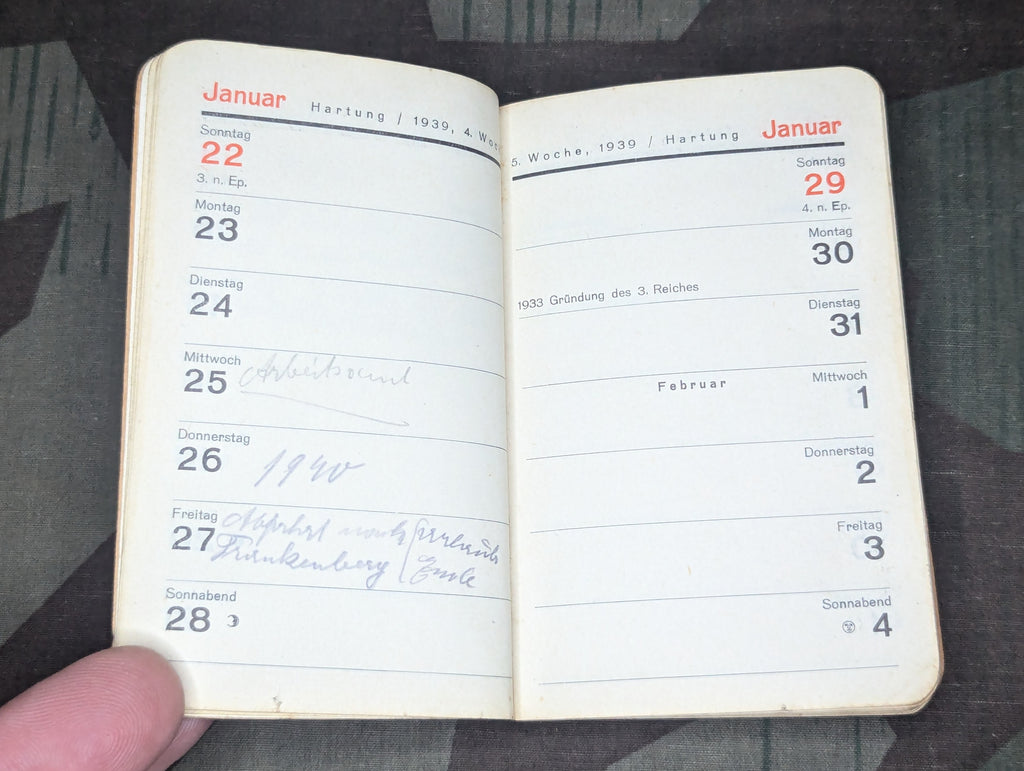 Januar Hartung / 1939, 4. Wo
Sonntag
22
3. n. Ep.
Montag
23
Dienstag
24
Mittwoch
25 Arbeitsamt
Donnerstag
26 1940
Freitag
27 Abfahrt nach
Frankenberg Ende
Sonnabend
28
5. Woche, 1939 / Hartung Januar
Sonntag
29
4. n. Ep.
Montag
30
1933 Gründung des 3. Reiches
Dienstag
31
Februar
Mittwoch
1
Donnerstag
2
Freitag
3
Sonnabend
4